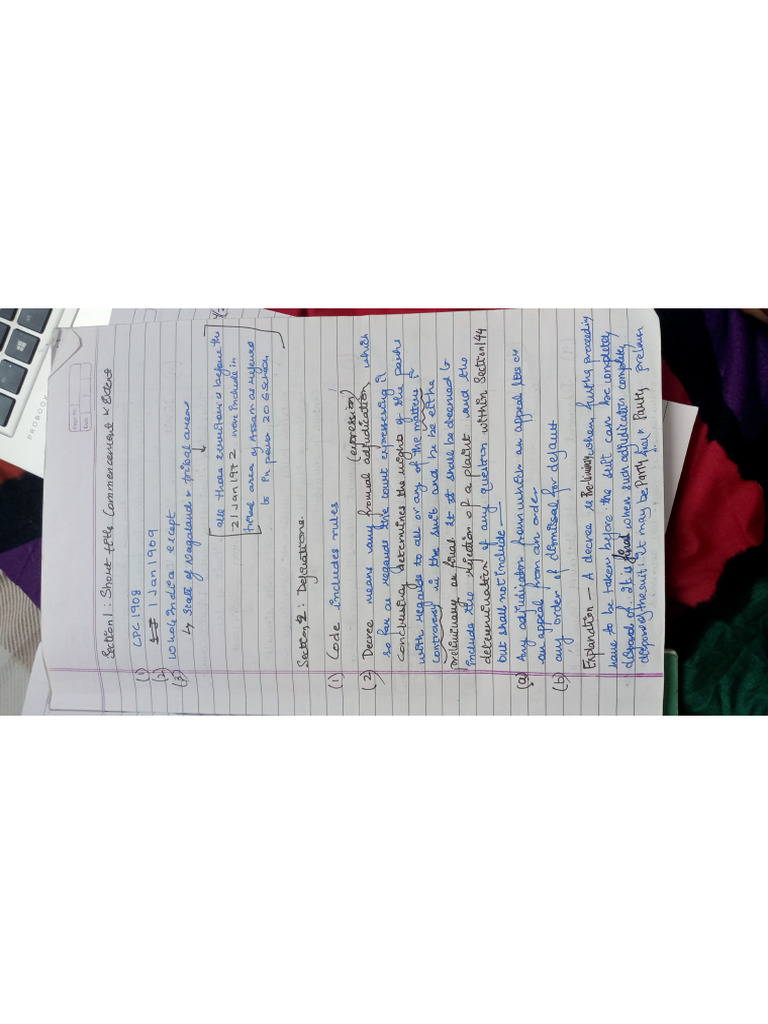 Section 1 : Short title Commencement & Extent
(1) CPC 1908
(2) 1 Jan 1909
(3) Whole India except
↳ State of Nagaland & tribal areas
[all those territories before the
21 Jan 1972 were include in
tribal area of Assam as referred
to in para 20 6 sched]
Section 2 : Definations.
(1) Code includes rules
(expression)
(2) Decree means any formal adjudication which
so far as regards the court expressing it
conclusively determines the rights of the parties
with regards to all or any of the matters in
controversy in the suit and may be either
preliminary or final It shall be deemed to
include the rejection of a plaint and the
determination of any question within Section 144
but shall not include —
(a) Any adjudication from which an appeal lies as
an appeal from an order
(b) any order of dismissal for default
Explanation — A decree is Preliminary when further proceedings
have to be taken before the suit can be completely
disposed of. it is final when such adjudication completely
disposes of the suit. it may be Partly Partly
PROBOOK